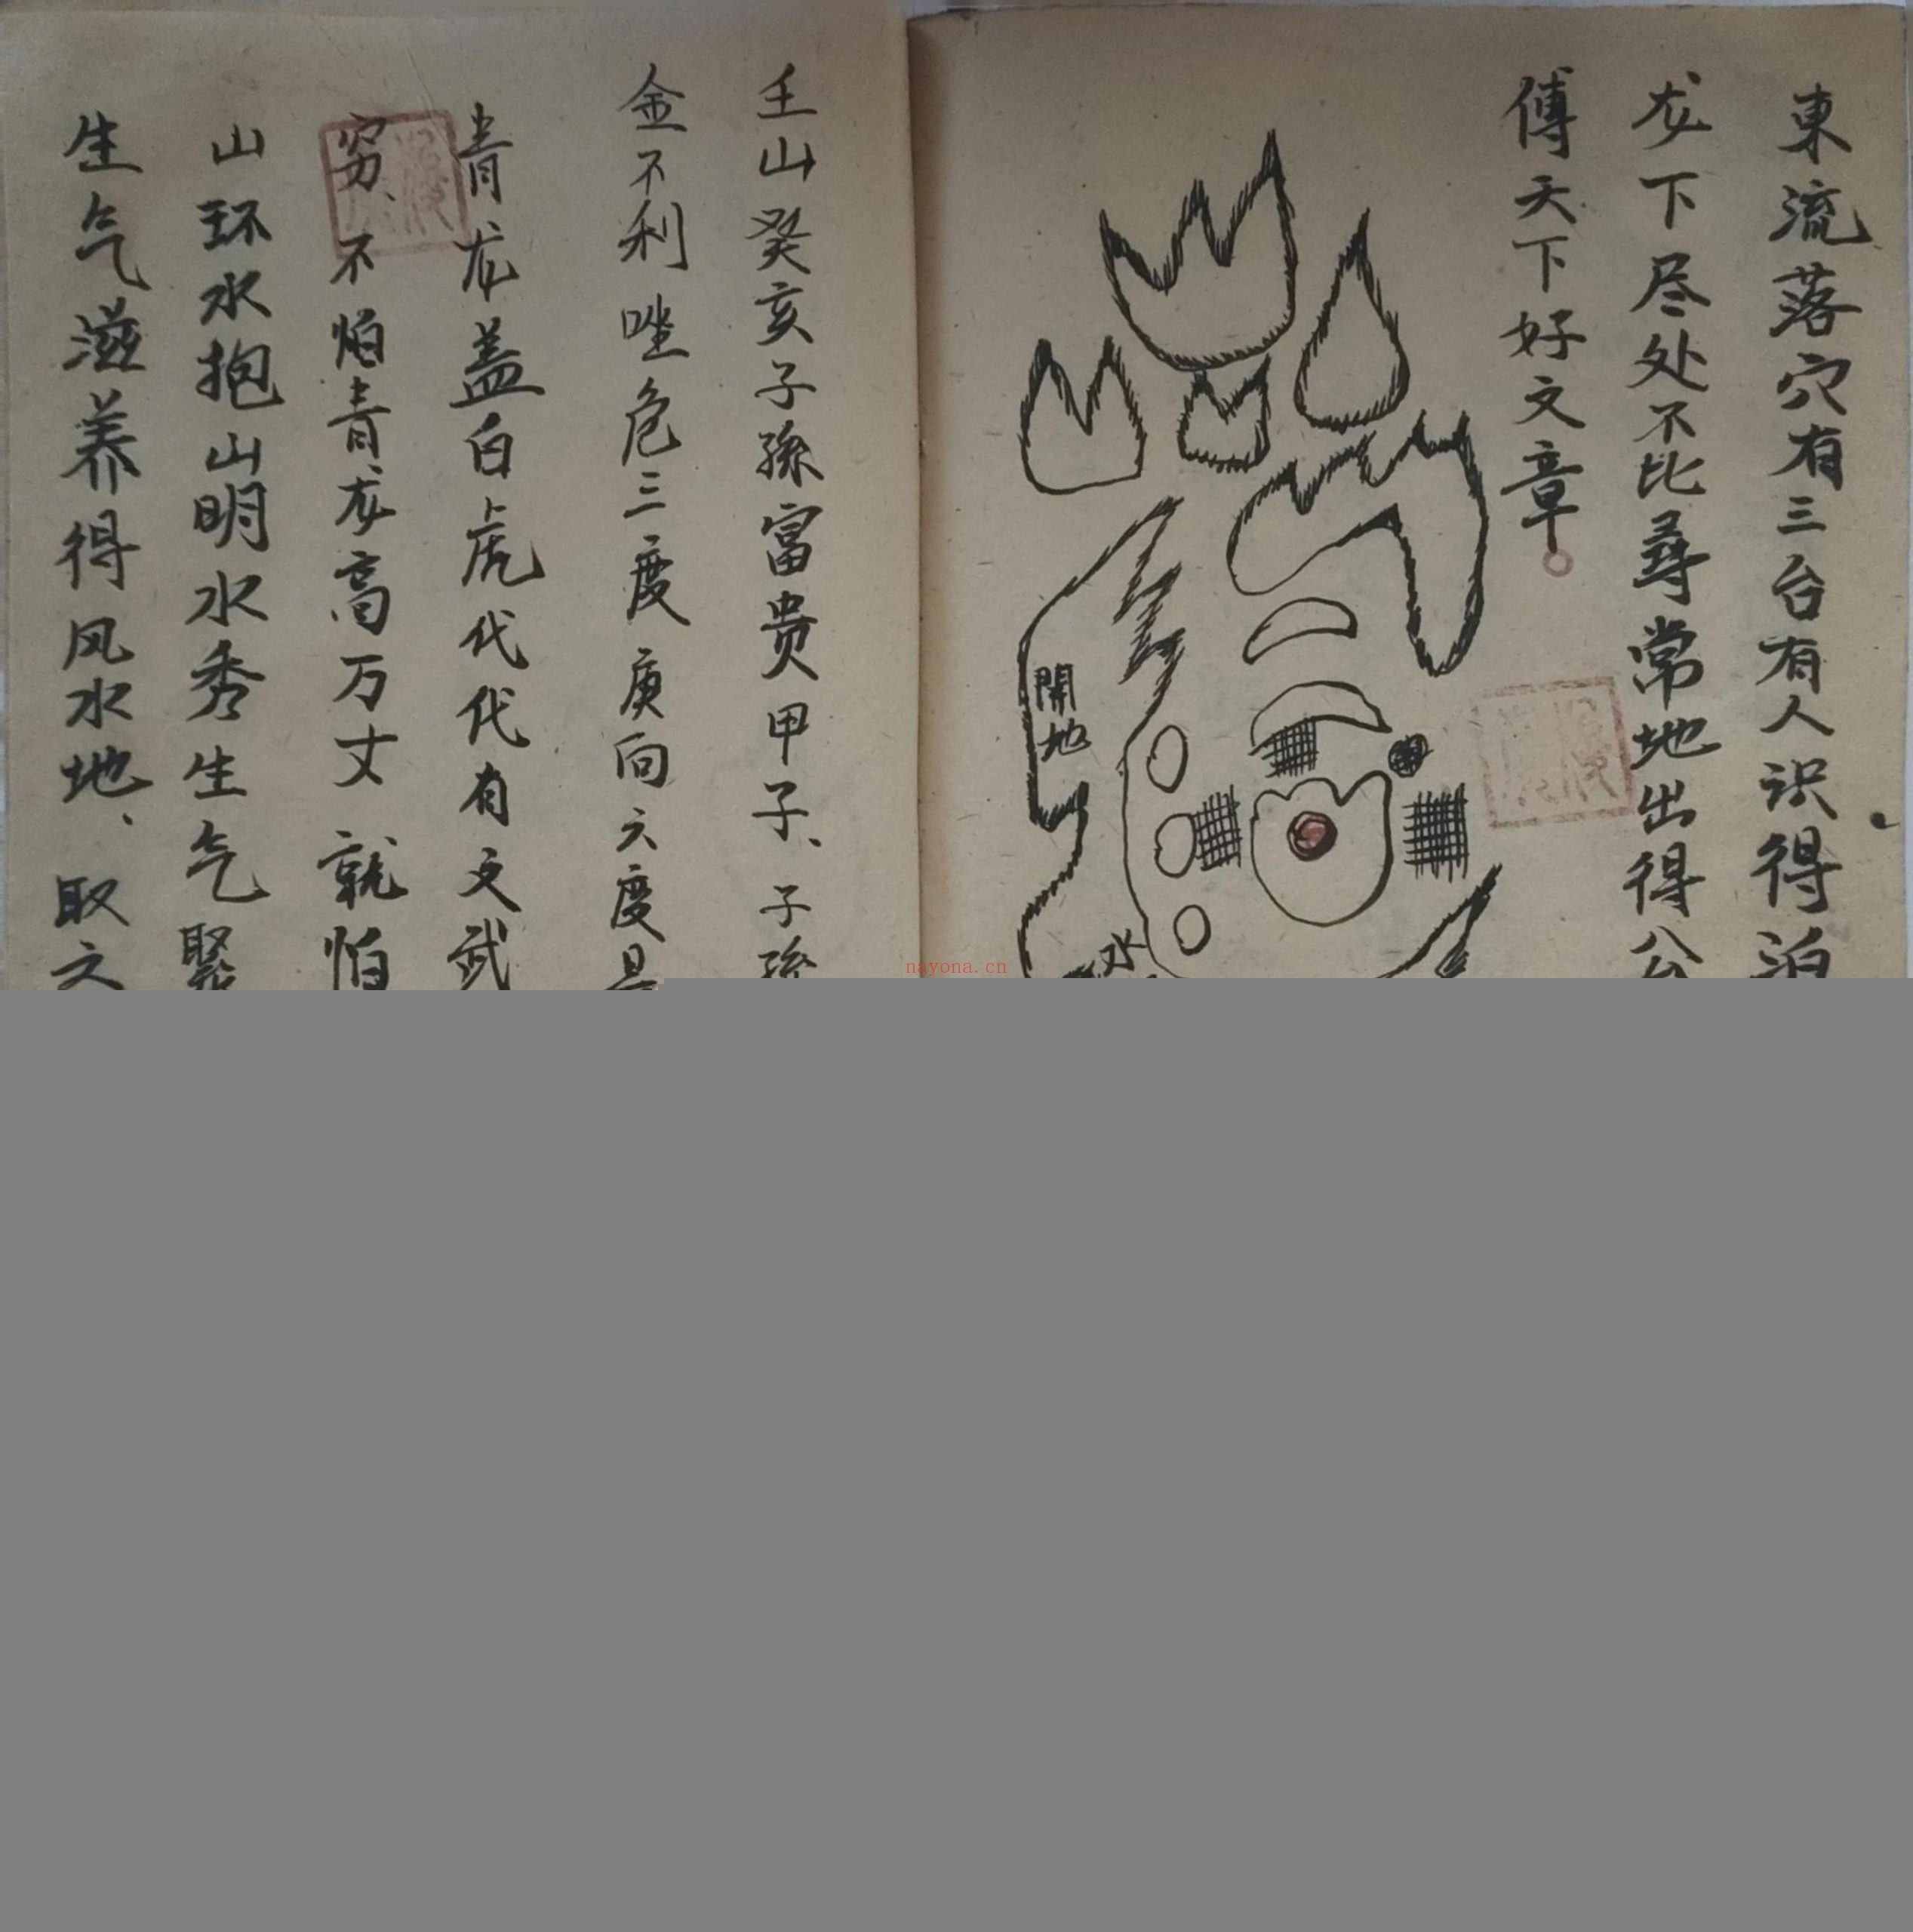 東流落穴有三台有人识得泊
龙下尽处不比尋常地出得公
傅天下好文章
開地
水
壬山癸亥子孫富贵甲子、子孫
金不利唑危三度庚向六度是
青龙盖白虎代代有文武
穷、不怕青龙高万丈就怕
山环水抱山明水秀生气聚
生气滋养得风水地、取之
nayona.cn